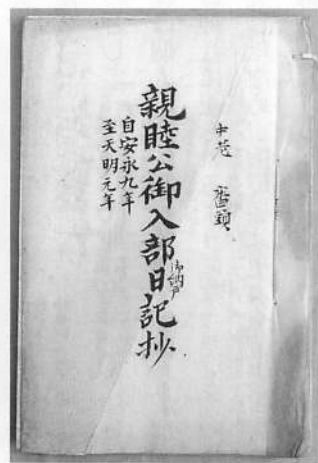 親睦公御入部日記抄
御納戸
自安永九年
至天明元年